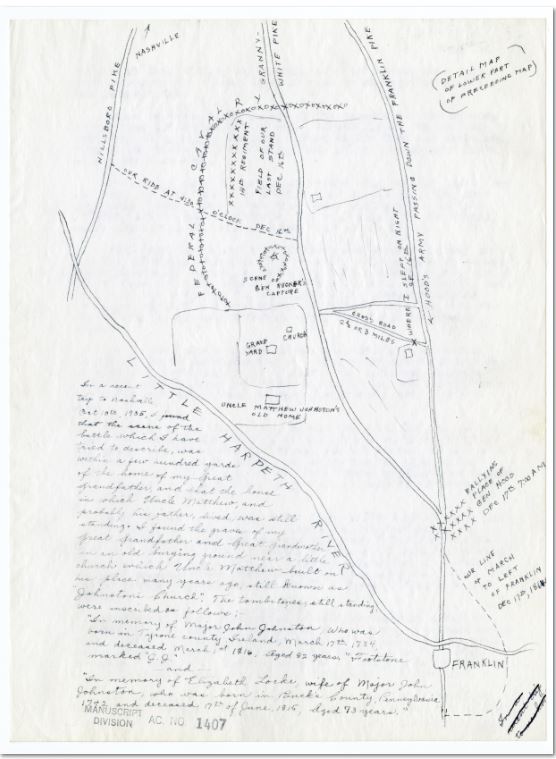 NASHVILLE
HILLSBORO PIKE
GRANNY-
WHITE PIKE
(DETAIL MAP
OF LOWER PART
OF PRECEDING MAP)
FEDERAL CAVALRY
XXXXXXXXXX
14th REGIMENT
FIELD OF OUR
LAST STAND
DEC 16th
OUR RIDE AT NINE O'CLOCK DEC 16th
SCENE OF
GEN RUCKER'S
CAPTURE
WHERE I SLEPT ON NIGHT
HOOD'S ARMY PASSING DOWN THE FRANKLIN PIKE
CROSS ROAD
2½ OR 3 MILES
CHURCH
GRAVE
YARD
UNCLE MATTHEW JOHNSTON'S
OLD HOME
LITTLE HARPETH RIVER
RALLYING
PLACE OF
GEN HOOD
DEC 17th 7:00 AM
OUR LINE
OF MARCH
TO LEFT
OF FRANKLIN
DEC 17th, 1864
FRANKLIN
In a recent
trip to Nashville
Oct 10th, 1905, I found
that the scene of the
battle which I have
tried to describe, was
within a few hundred yards
of the home of my Great
grandfather, and that the house
in which Uncle Matthew, and
probably his father, lived, was still
standing. I found the graves of my
Great Grandfather and Great Grandmother
in an old burying ground near a little
church which Uncle Matthew built on
his place many years ago, still known as
"Johnston's Church". The tombstones, still standing
were inscribed as follows:-
"In memory of Major John Johnston, who was
born in Tyrone county, Ireland, March 17th, 1734
and deceased March 1st 1816, Aged 82 years," "Footstone
marked "J.J."
and —
"In memory of Elizabeth Locke, wife of Major John
Johnston, who was born in Bucks County, Pennsylvania
1742 and deceased, 17th of June, 1815, Aged 73 years."
MANUSCRIPT
DIVISION AC. NO. 1407